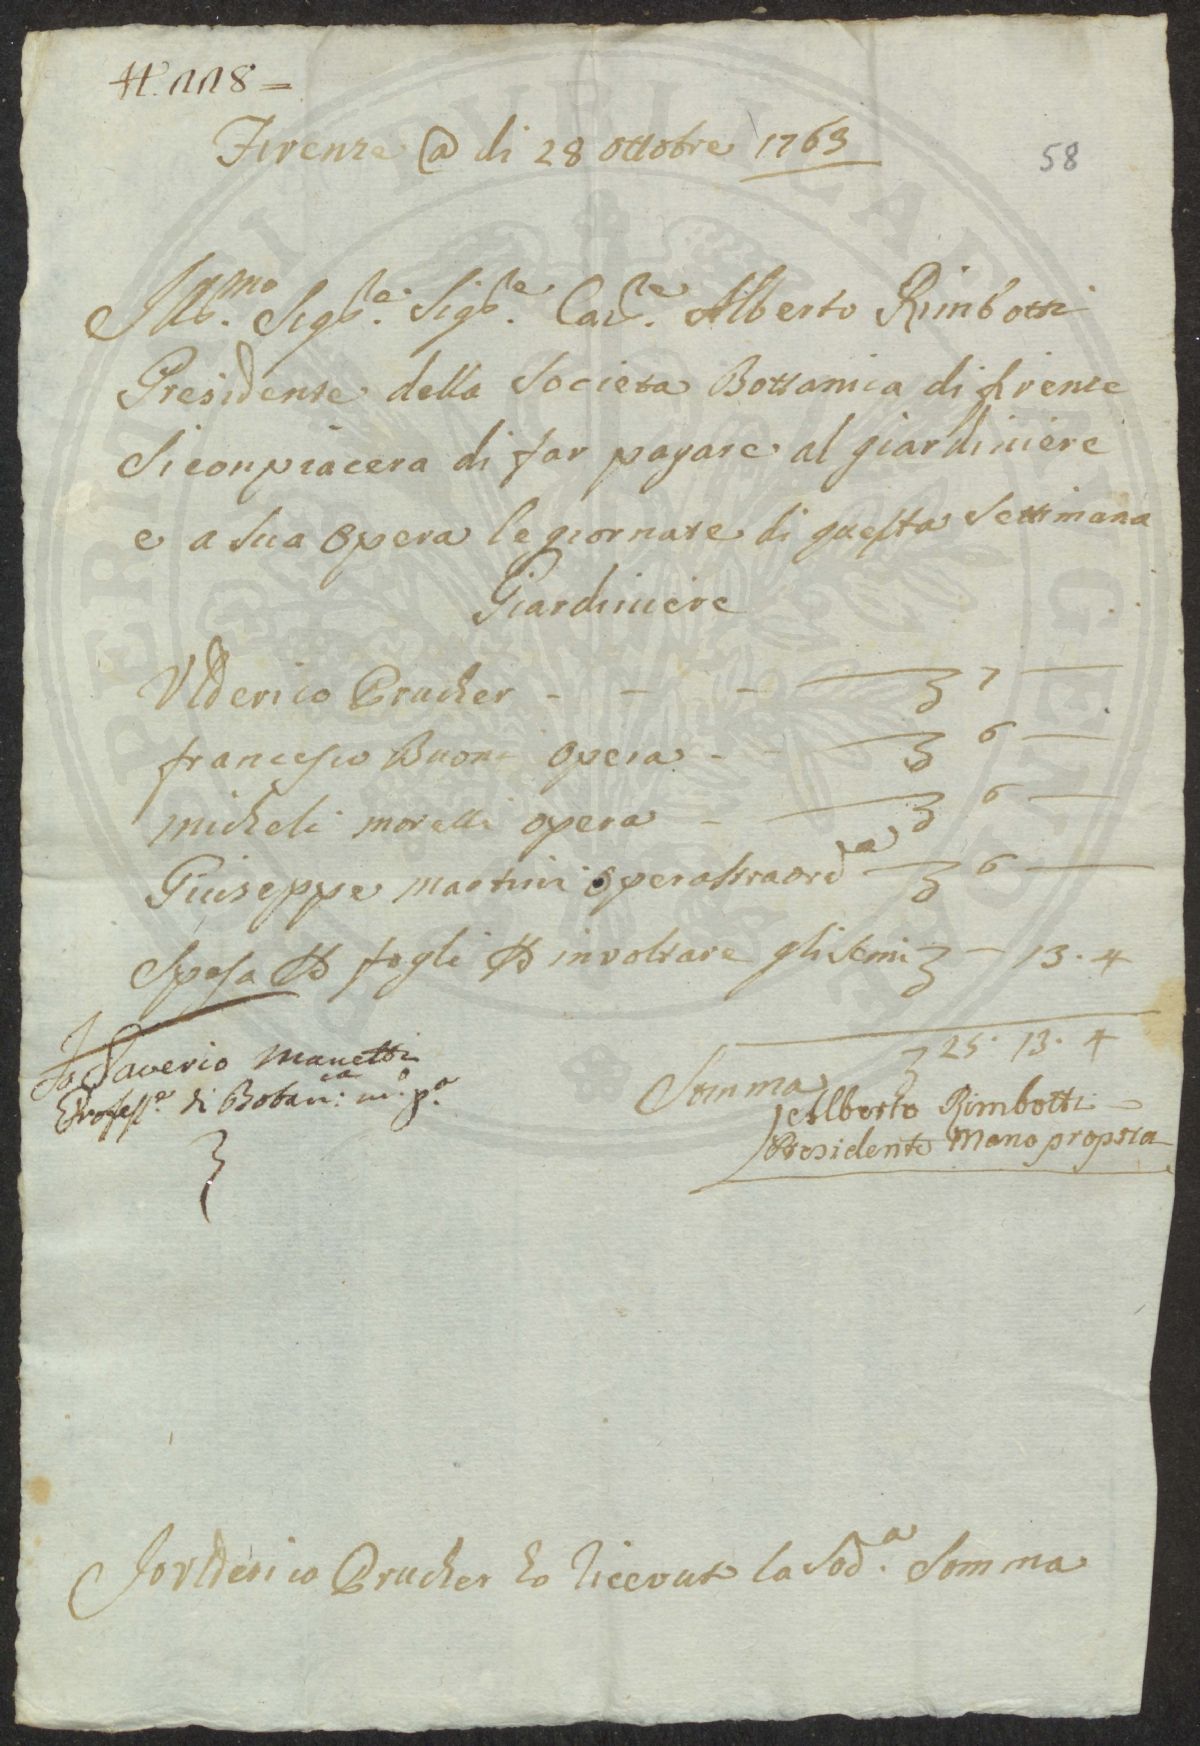 N. 118 =
Firenze @ di 28 ottobre 1763
58
Ill.mo Sig.re Sig.re Cav.re Alberto Rimbotti
Presidente della Societa Bottanica di firenze
Si conpiacera di far pagare al giardiniere
e a sua Opera le giornate di questa Settimana
Giardiniere
Ulderico Prucher - - - 7 —
francesco Buoni Opera - - 6 —
micheli morelli opera - 6 —
Giuseppe martini operastraord.a 6 —
Spesa p fogli p involtare gli semi — 13. 4
Somma 25. 13. 4
Io Saverio Manetti
Profess.e di Botan.ca m.o p.a
Alberto Rimbotti
Presidente Mano propria
Io Ulderico Prucher ho ricevuto la Sod.a Somma